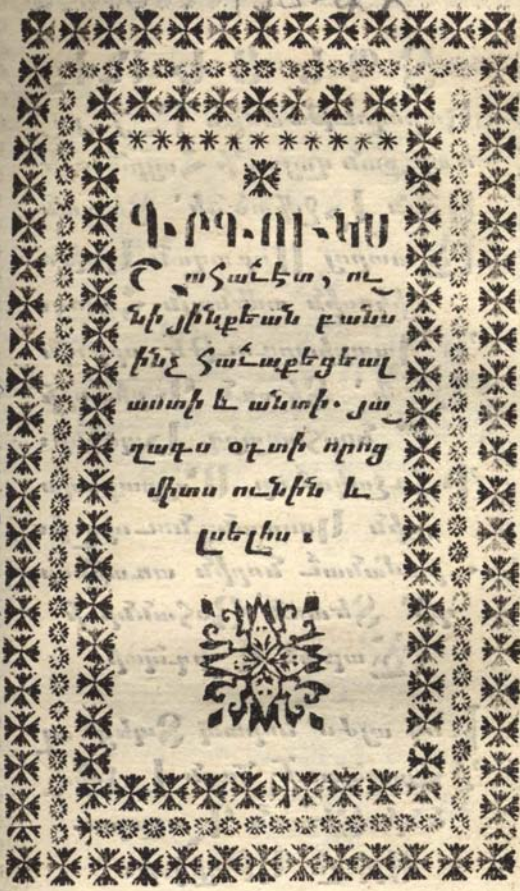 ԳՐԳՈՒԿՍ
Շահաւէտ, ու֊
նի յինքեան բանս
ինչ հաւաքեցեալ
աստի և անտի. յա֊
ղագս օգտի որոց
միտս ունին և
լսելիս։